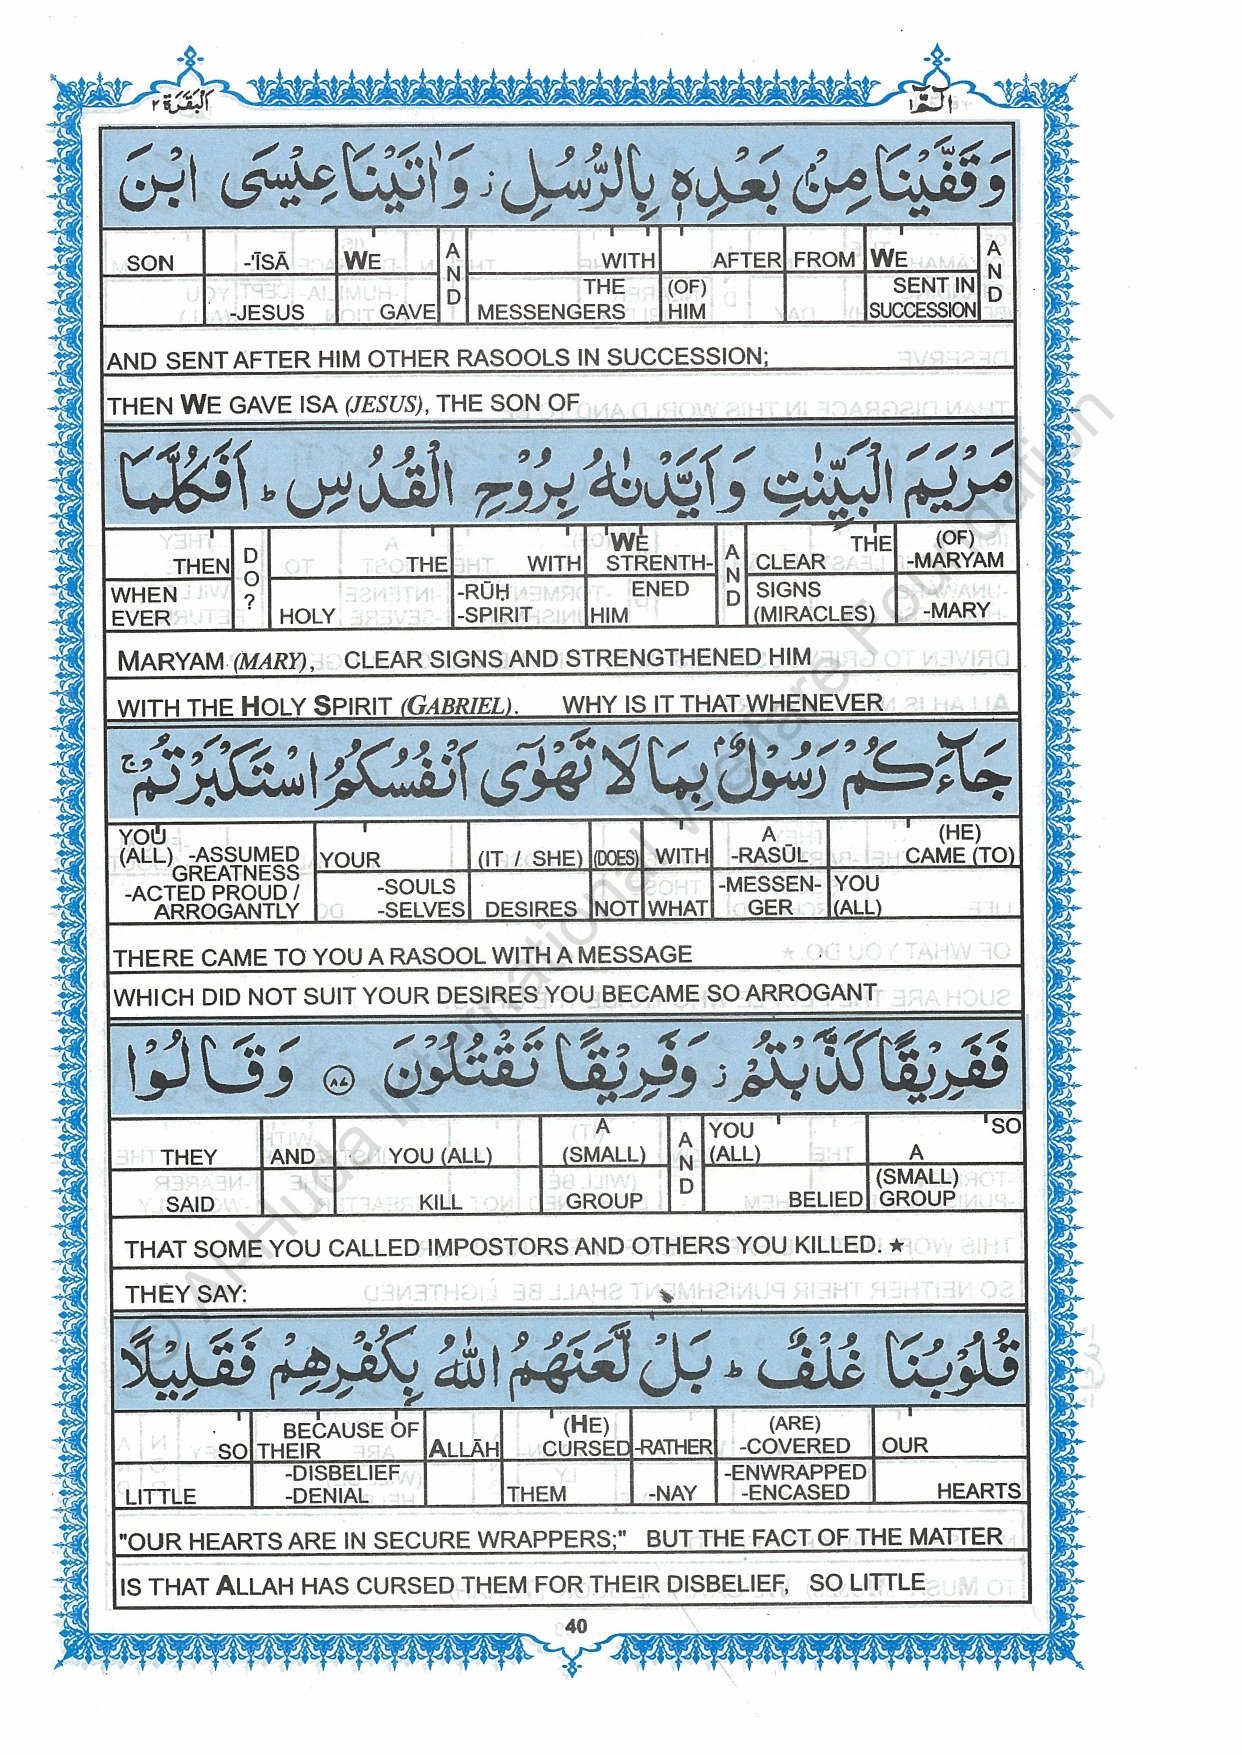 البقرة ٢
الٓمّٓ ١
وَقَفَّيْنَا مِنْۢ بَعْدِهٖ بِالرُّسُلِ ز وَاٰتَيْنَا عِيْسَى ابْنَ
SON -'ĪSĀ WE AND WITH AFTER FROM WE AND
-JESUS GAVE THE MESSENGERS (OF) HIM SENT IN SUCCESSION
AND SENT AFTER HIM OTHER RASOOLS IN SUCCESSION;
THEN WE GAVE ISA (JESUS), THE SON OF
مَرْيَمَ الْبَيِّنٰتِ وَاَيَّدْنٰهُ بِرُوْحِ الْقُدُسِ ط اَفَكُلَّمَا
THEN DO? THE WITH WE STRENTH- AND CLEAR THE (OF) -MARYAM
WHEN EVER HOLY -RŪḤ -SPIRIT ENED HIM SIGNS (MIRACLES) -MARY
MARYAM (MARY), CLEAR SIGNS AND STRENGTHENED HIM
WITH THE HOLY SPIRIT (GABRIEL). WHY IS IT THAT WHENEVER
جَآءَكُمْ رَسُوْلٌۢ بِمَا لَا تَهْوٰٓى اَنْفُسُكُمُ اسْتَكْبَرْتُمْ ج
YOU (ALL) -ASSUMED GREATNESS YOUR (IT / SHE) (DOES) WITH A -RASŪL (HE) CAME (TO)
-ACTED PROUD / ARROGANTLY -SOULS -SELVES DESIRES NOT WHAT -MESSEN- GER YOU (ALL)
THERE CAME TO YOU A RASOOL WITH A MESSAGE
WHICH DID NOT SUIT YOUR DESIRES YOU BECAME SO ARROGANT
فَفَرِيْقًا كَذَّبْتُمْ ز وَفَرِيْقًا تَقْتُلُوْنَ ٨٧ وَقَالُوْا
THEY AND YOU (ALL) A (SMALL) AND YOU (ALL) SO A
SAID KILL GROUP BELIED (SMALL) GROUP
THAT SOME YOU CALLED IMPOSTORS AND OTHERS YOU KILLED. ★
THEY SAY:
قُلُوْبُنَا غُلْفٌ ط بَلْ لَّعَنَهُمُ اللّٰهُ بِكُفْرِهِمْ فَقَلِيْلًا
SO BECAUSE OF THEIR ALLĀH (HE) CURSED -RATHER (ARE) -COVERED OUR
LITTLE -DISBELIEF -DENIAL THEM -NAY -ENWRAPPED -ENCASED HEARTS
"OUR HEARTS ARE IN SECURE WRAPPERS;" BUT THE FACT OF THE MATTER
IS THAT ALLAH HAS CURSED THEM FOR THEIR DISBELIEF, SO LITTLE
40
© Al-Huda International Welfare Foundation